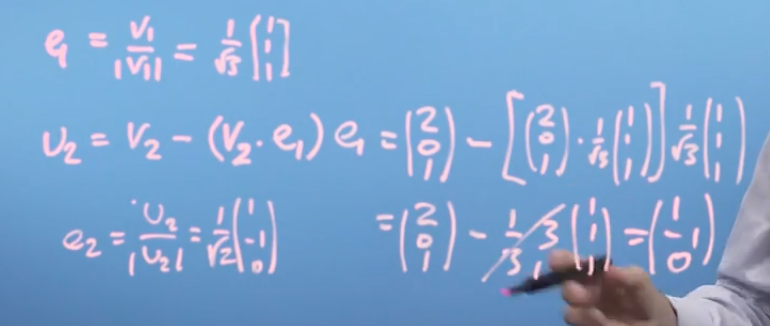 e₁ = v₁/|v₁| = 1/√3 (1 1 1)
u₂ = v₂ − (v₂ · e₁) e₁ = (2 0 1) − [(2 0 1) · 1/√3 (1 1 1)] 1/√3 (1 1 1)
e₂ = u₂/|u₂| = 1/√2 (1 -1 0)
= (2 0 1) − 1/3 3 (1 1 1) = (1 -1 0)